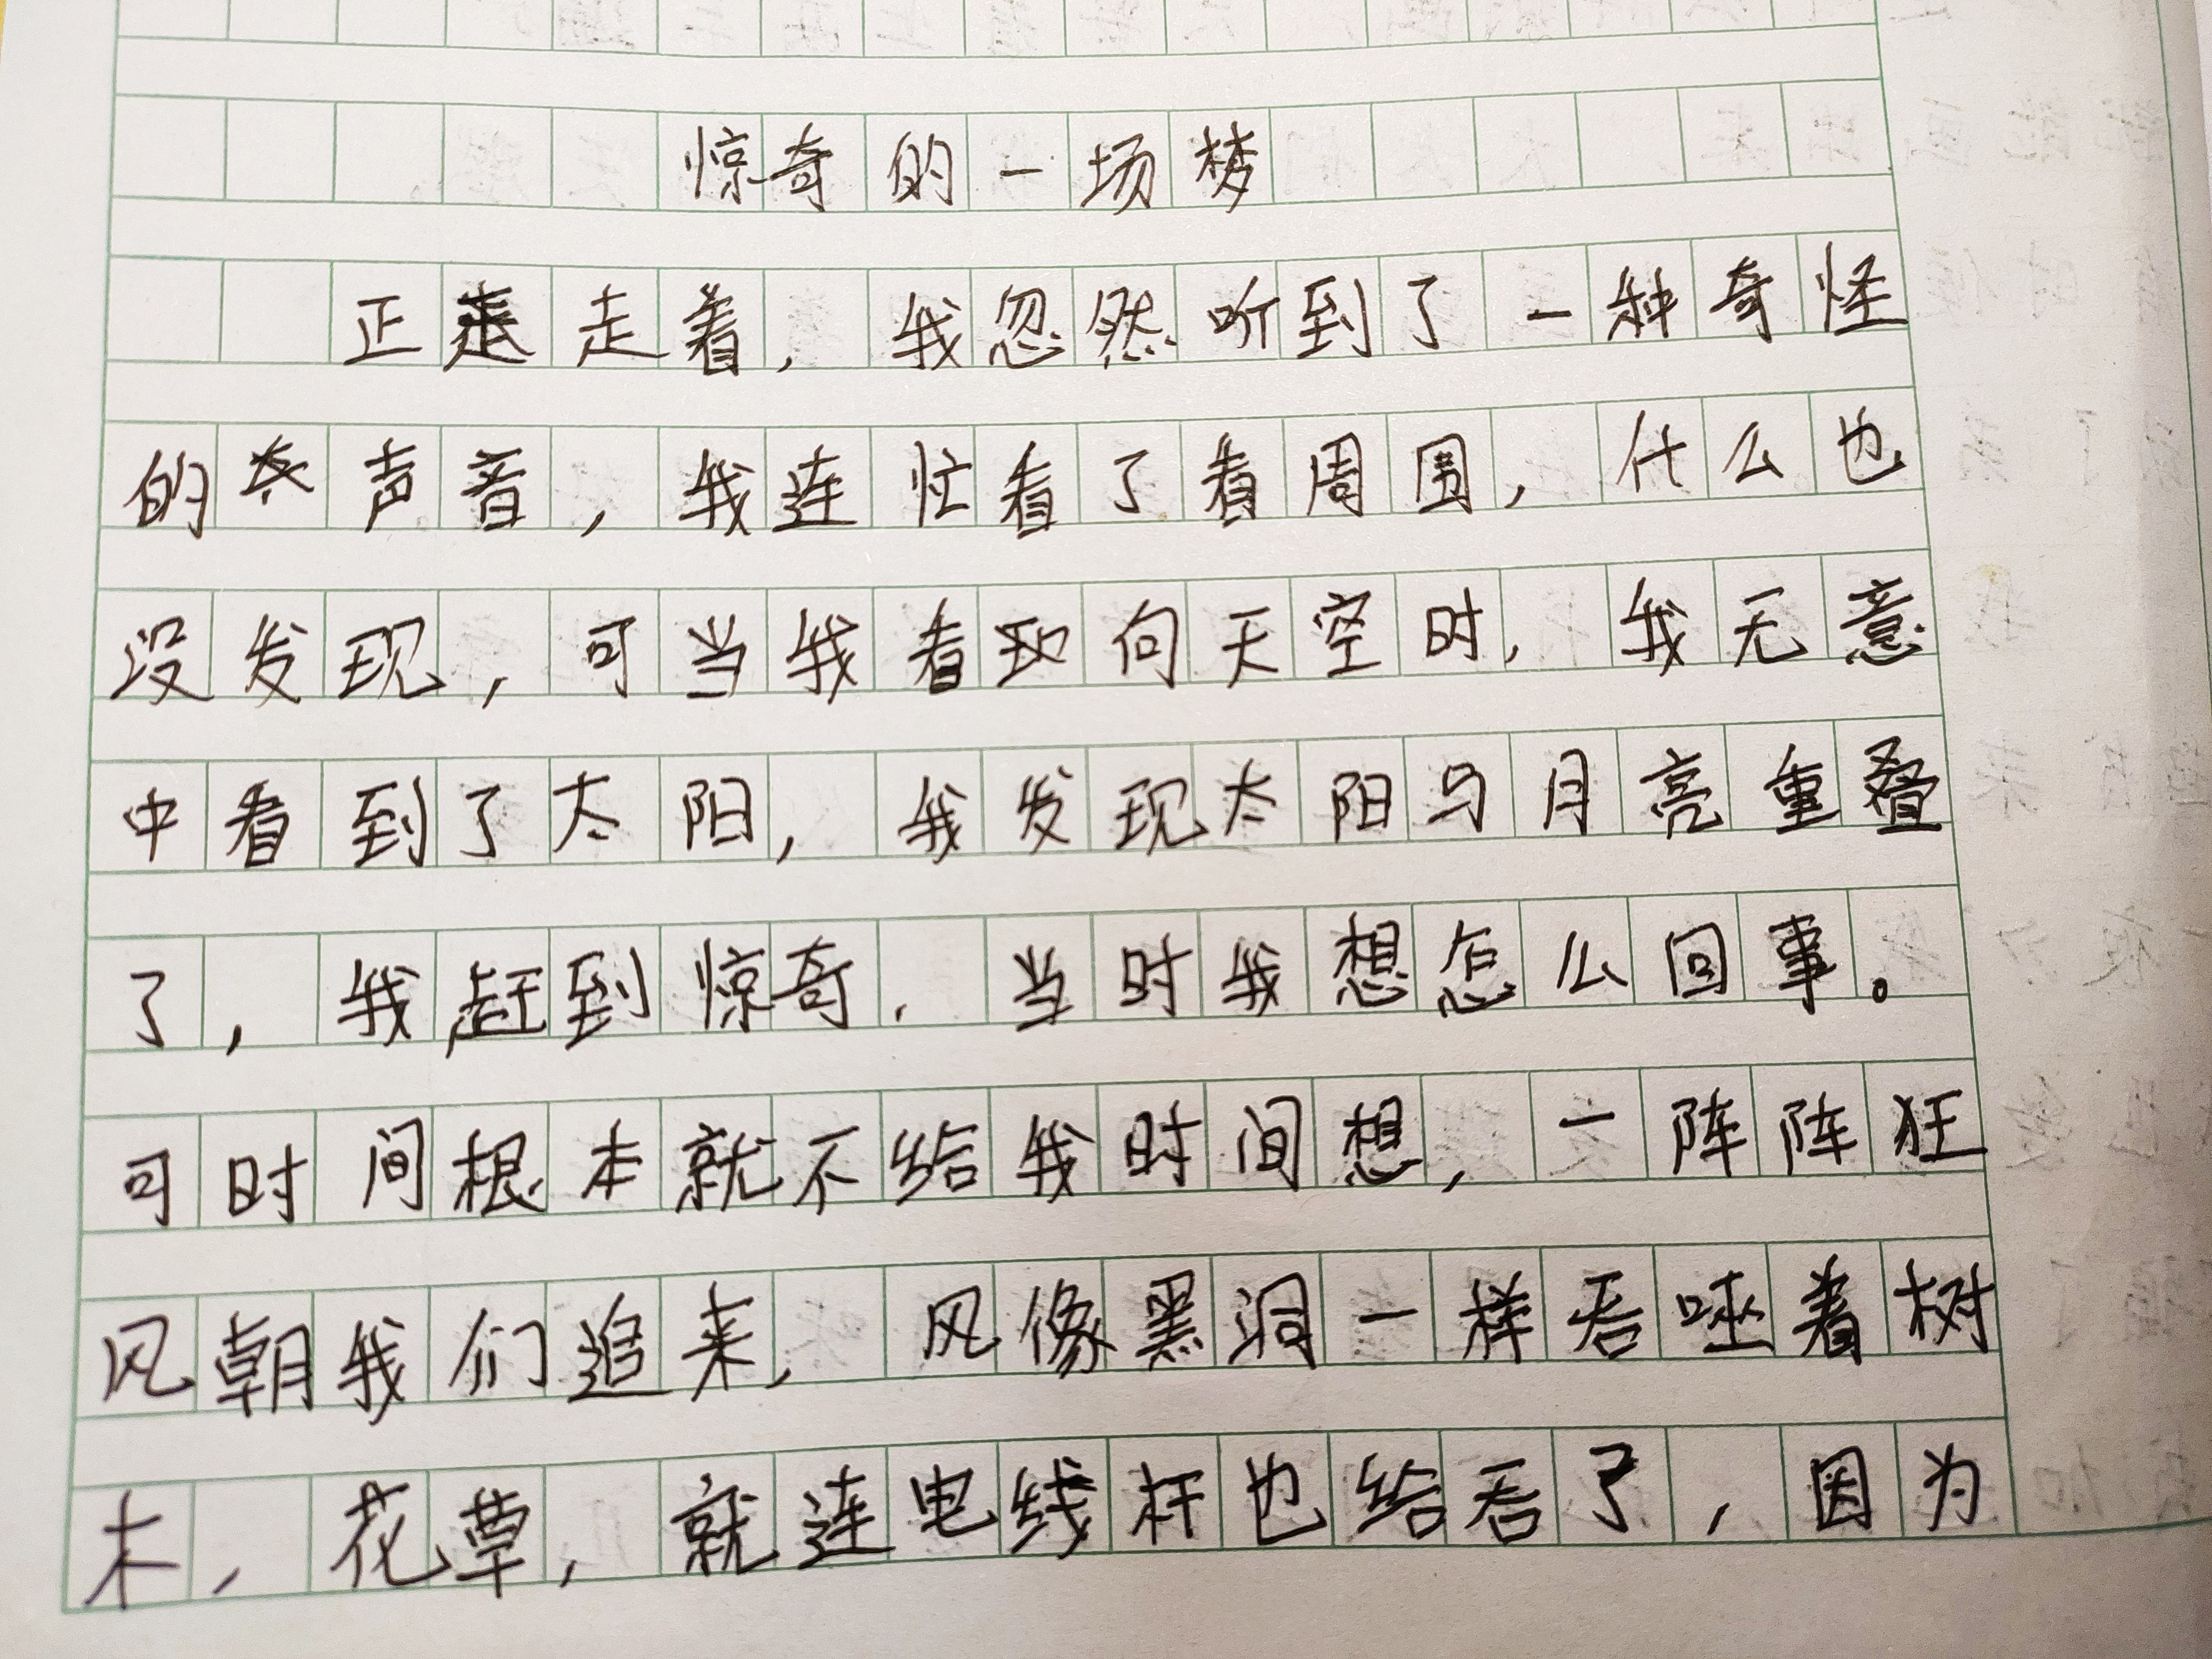 惊奇的一场梦
正走着，我忽然听到了一种奇怪
的声音，我连忙看了看周围，什么也
没发现，可当我看向天空时，我无意
中看到了太阳，我发现太阳与月亮重叠
了，我赶到惊奇，当时我想怎么回事。
可时间根本就不给我时间想，一阵阵狂
风朝我们追来，风像黑洞一样吞噬着树
木，花草，就连电线杆也给吞了，因为